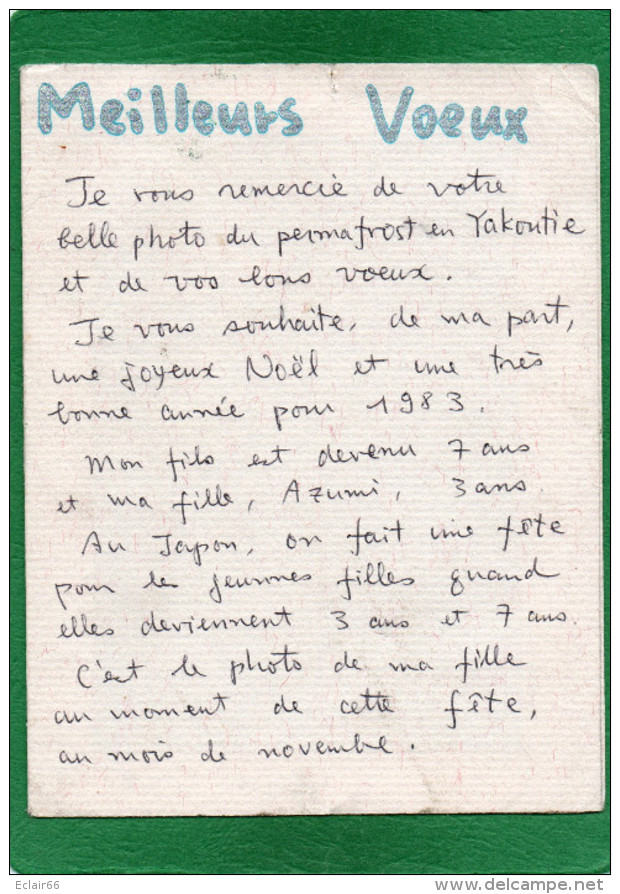 Meilleurs Voeux
Je vous remercie de votre
belle photo du permafrost en Yakoutie
et de vos bons voeux.
Je vous souhaite, de ma part,
une joyeux Noël et une très
bonne année pour 1983.
Mon fils est devenu 7 ans
et ma fille, Azumi, 3 ans.
Au Japon, on fait une fête
pour les jeunnes filles quand
elles deviennent 3 ans et 7 ans.
C'est le photo de ma fille
au moment de cette fête,
au mois de novembre.
Eclair66
www.delcampe.net